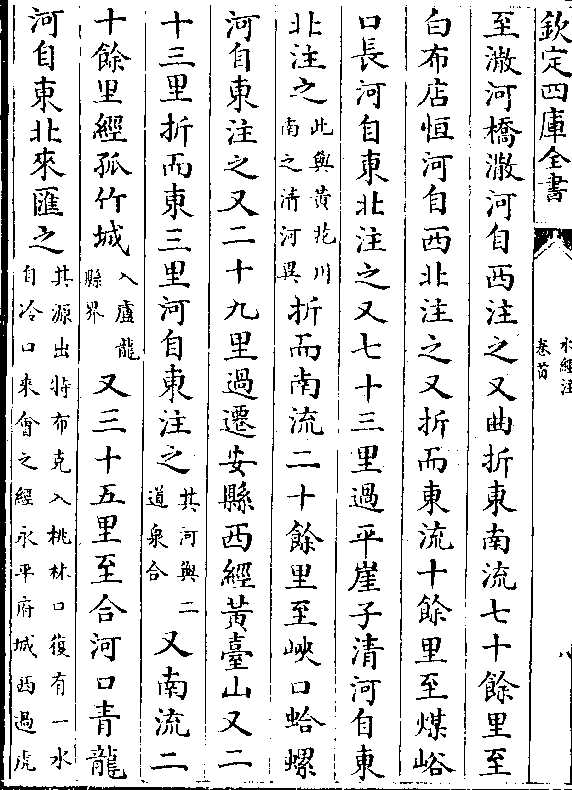 欽定四庫全書
水經注
卷首
八
至澉河橋澉河自西注之又曲折東南流七十餘里至
白布店恒河自西北注之又折而東流十餘里至煤峪
口長河自東北注之又七十三里過平崖子清河自東
北注之此與黃花川南之清河異折而南流二十餘里至峽口蛤螺
河自東注之又二十九里過遷安縣西經黃臺山又二
十三里折而東三里河自東注之其河與二道泉合又南流二
十餘里經孤竹城入盧龍縣界又三十五里至合河口青龍
河自東北來匯之其源出特布克入桃林口復有一水自冷口來會之經永平府城西過虎